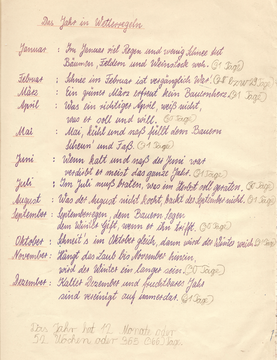 Das Jahr in Wetterregeln
Januar : Im Januar viel Regen und wenig Schnee tut
Bäumen, Feldern und Weinstock weh. (31 Tage)
Februar : Schnee im Februar ist vergänglich War! (28 bzw. 29 Tage)
März : Ein grüner März erfreut kein Bauernherz. (31 Tage)
April : Was ein richtiger April, weiß nicht,
was er soll und will. (30 Tage)
Mai : Mai, kühl und naß füllt dem Bauern
Scheun' und Faß. (31 Tage)
Juni : Wenn kalt und naß der Juni war
verdirbt er meist das ganze Jahr. (30 Tage)
Juli : Im Juli muß braten, was im Herbst soll geraten. (31 Tage)
August : Was der August nicht kocht, brackt der September nicht. (31 Tage)
September : Septemberregen, dem Bauern Segen
dem Winzer Gift, wenn er ihn trifft. (30 Tage)
Oktober : Schneit's im Oktober gleich, dann wird der Winter weich. (31 Tage)
November : Hängt das Laub bis November hinein,
wird der Winter ein langer sein. (30 Tage)
Dezember : Kalter Dezember und fruchtbares Jahr
sind vereinigt auf immerdar. (31 Tage)
Das Jahr hat 12 Monate oder
52 Wochen oder 365 (366) Tage.